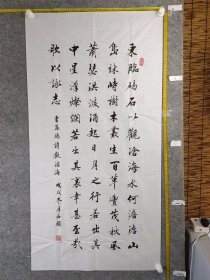 東臨碣石以觀滄海水何澹澹山
島竦峙樹木叢生百草豐茂秋風
蕭瑟洪波涌起日月之行若出其
中星漢燦爛若出其裏幸甚至哉
歌以詠志